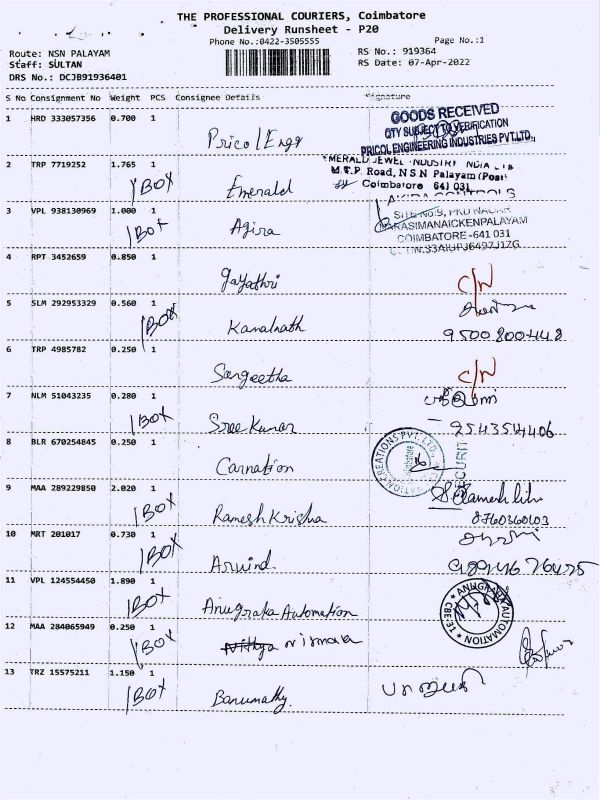 THE PROFESSIONAL COURIERS, Coimbatore
Delivery Runsheet - P20
Phone No.:0422-3505555
Page No.:1
Route: NSN PALAYAM
Staff: SULTAN
DRS No.: DCJB91936401
RS No.: 919364
RS Date: 07-Apr-2022
S No Consignment No Weight PCS Consignee Details Signature
1 HRD 333057356 0.700 1 Pricol Engg
GOODS RECEIVED
QTY SUBJECT TO VERIFICATION
PRICOL ENGINEERING INDUSTRIES PVT.LTD.,
2 TRP 7719252 1.765 1 1BOX Emerald
EMERALD JEWEL INDUSTRY INDIA
M.T.P. Road, N S N Palayam (Post)
Coimbatore 641 031
3 VPL 938130969 1.000 1 1BOX Agira
NARASIMANAICKENPALAYAM
COIMBATORE-641 031
4 RPT 3452659 0.850 1 Gayathri C/N
5 SLM 292953329 0.560 1 1BOX Kamalnath
9500800448
6 TRP 4985782 0.250 1 Sangeetha C/N
7 NLM 51043235 0.280 1 1BOX Sree Kumar
9543544406
8 BLR 670254845 0.250 1 Carnation
SECURIT
9 MAA 289229850 2.020 1 1BOX Ramesh Krisha
8760360103
10 MRT 201017 0.730 1 1BOX Arvind
11 VPL 124554450 1.890 1 1BOX Anugraka Automation
ANUGRAHA AUTOMATION
CBE-31
12 MAA 284065949 0.250 1 1BOX Nithya Nirmala
13 TRZ 15575211 1.150 1 1BOX Banumathy
பானுமதி